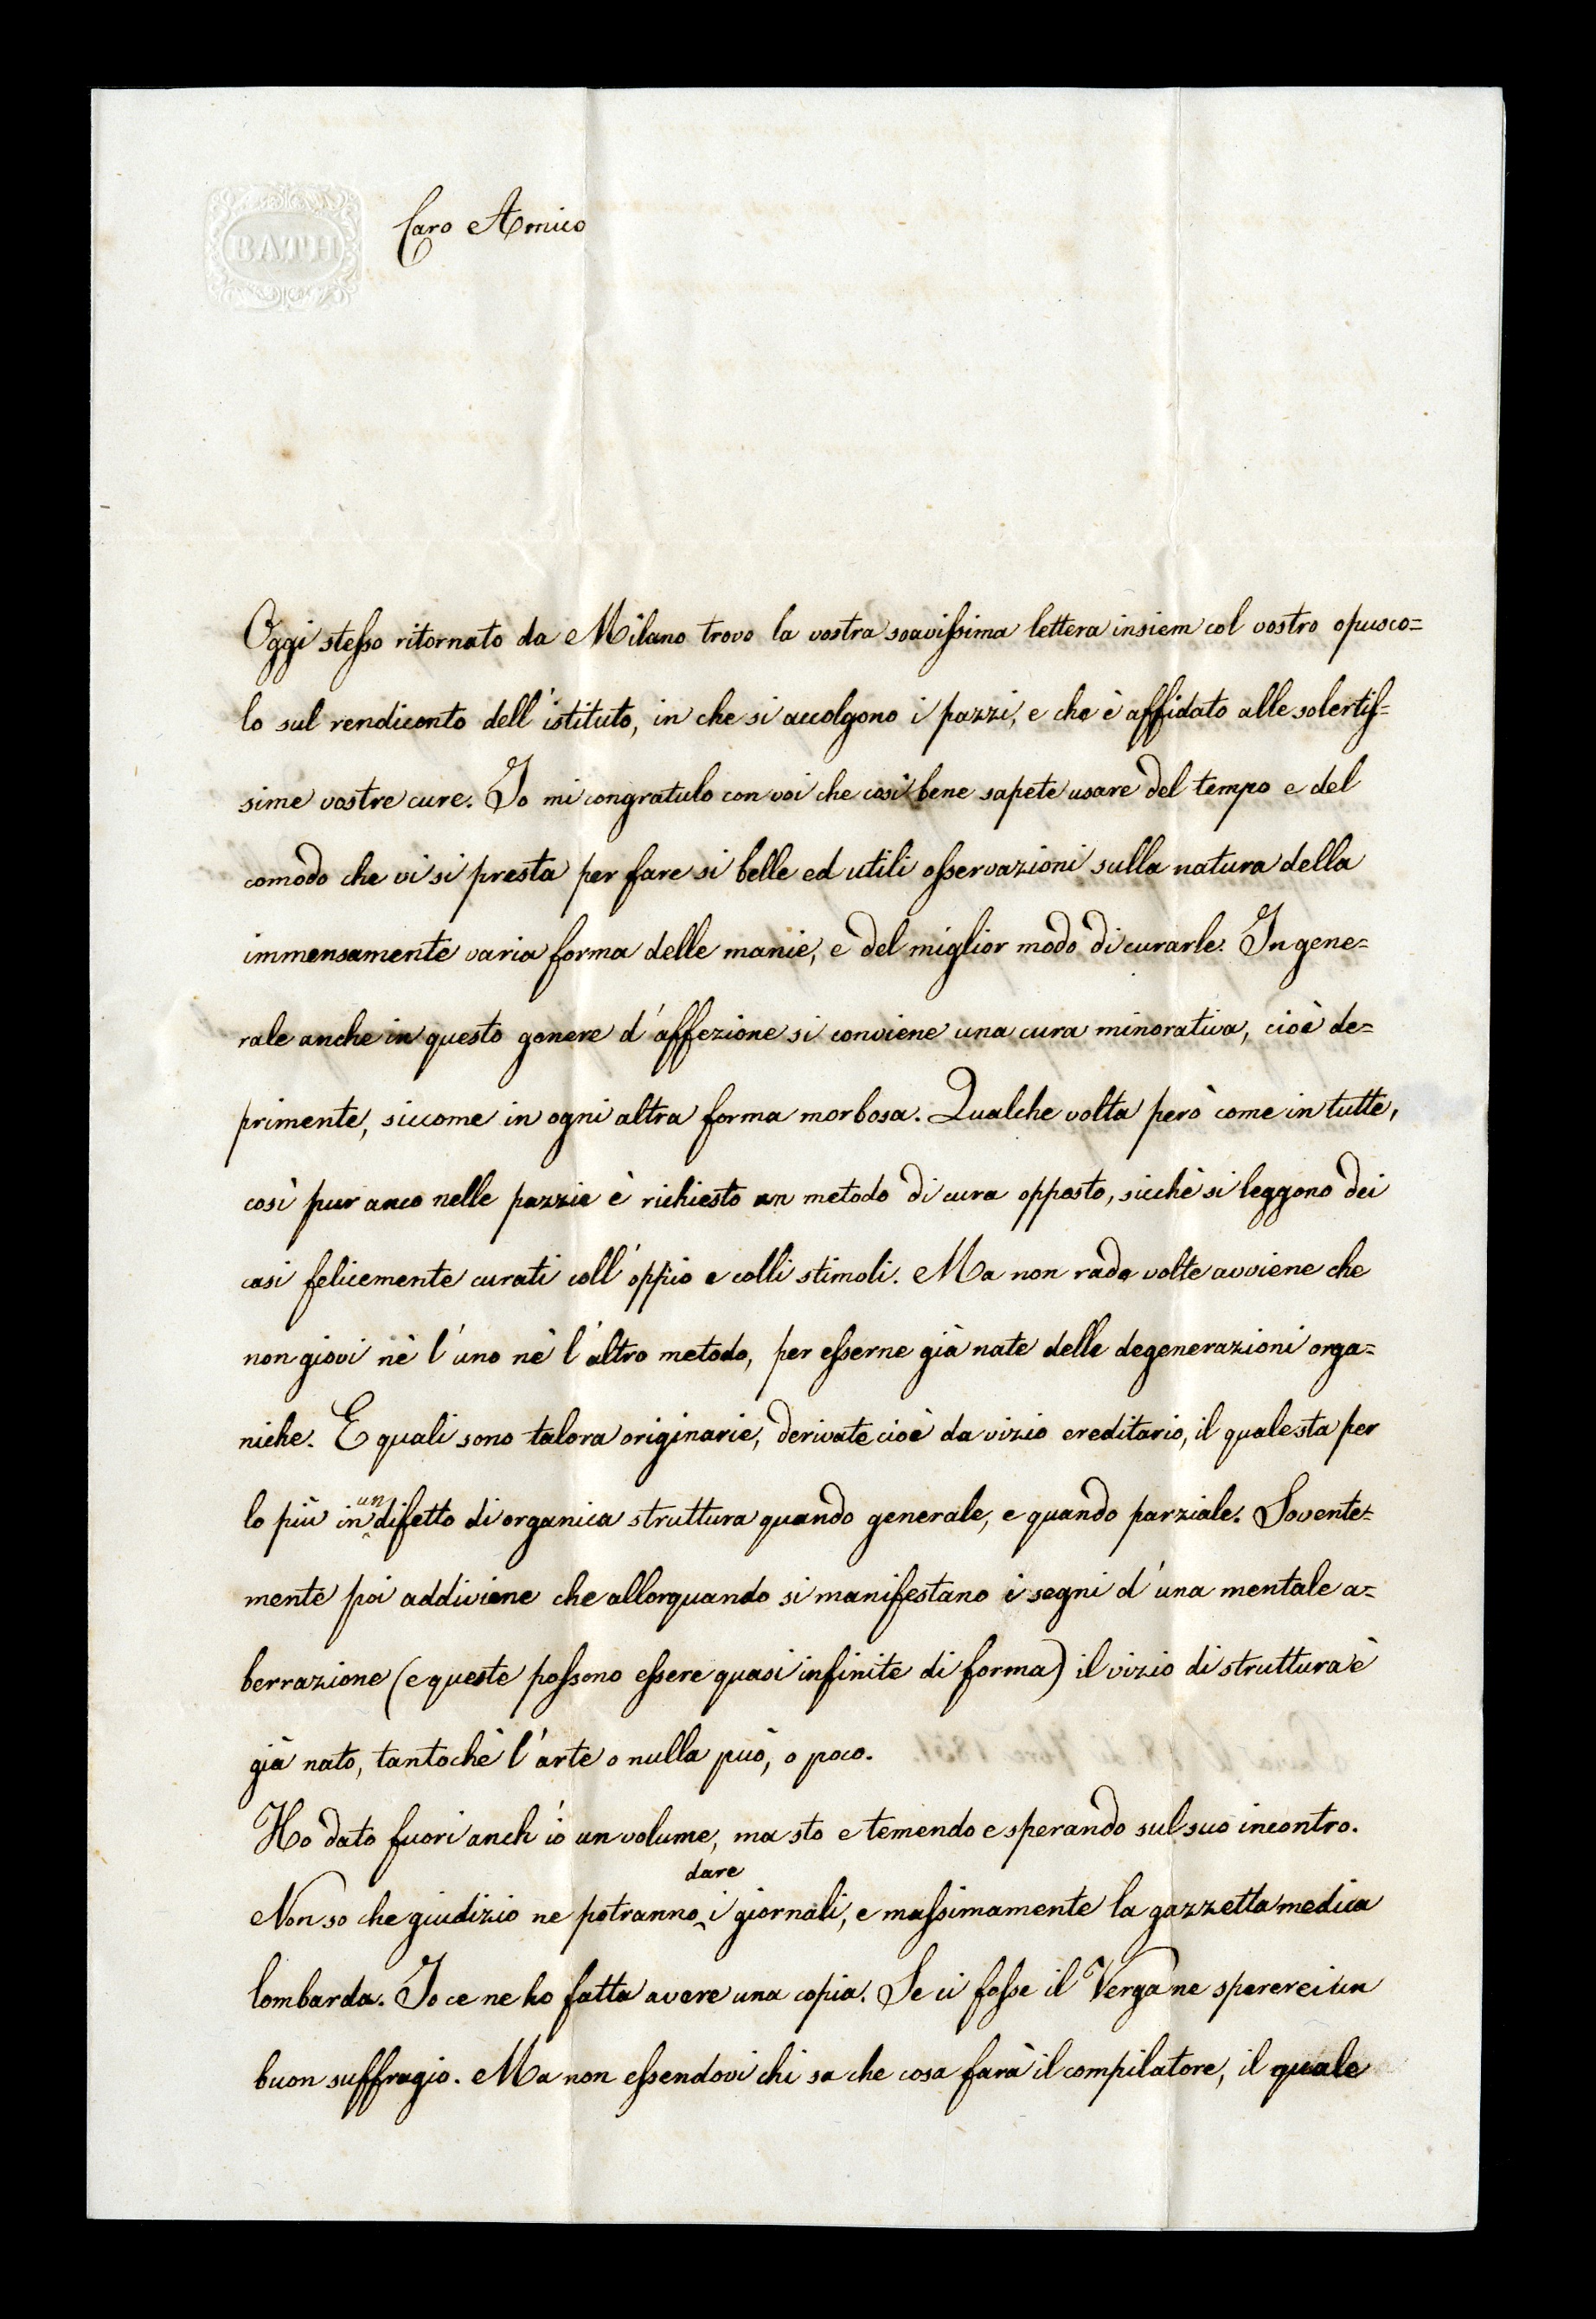 BATH
Caro Amico
Oggi stesso ritornato da Milano trovo la vostra soavissima lettera insiem col vostro opusco=
lo sul rendiconto dell'istituto, in che si accolgono i pazzi, e che è affidato alle solertis=
sime vostre cure. Io mi congratulo con voi che così bene sapete usare del tempo e del
comodo che vi si presta per fare si belle ed utili osservazioni sulla natura della
immensamente varia forma delle manie, e del miglior modo di curarle. In gene=
rale anche in questo genere d'affezione si conviene una cura minorativa, cioè de=
primente, siccome in ogni altra forma morbosa. Qualche volta però come in tutte,
così pur anco nelle pazzie è richiesto un metodo di cura opposto, sicchè si leggono dei
casi felicemente curati coll'oppio e colli stimoli. Ma non rade volte avviene che
non giovi nè l'uno nè l'altro metodo, per esserne già nate delle degenerazioni orga=
niche. E quali sono talora originarie, derivate cioè da vizio ereditario, il quale sta per
lo più in un difetto di organica struttura quando generale, e quando parziale. Sovente=
mente poi addiviene che allorquando si manifestano i segni d'una mentale a=
berrazione (e queste possono essere quasi infinite di forma) il vizio di struttura è
già nato, tantochè l'arte o nulla può, o poco.
Ho dato fuori anch'io un volume, ma sto e temendo e sperando sul suo incontro.
Non so che giudizio ne potranno dare i giornali, e massimamente la gazzetta medica
lombarda. Io ce ne ho fatta avere una copia. Se ci fosse il Verga ne spererei un
buon suffragio. Ma non essendovi chi sa che cosa farà il compilatore, il quale